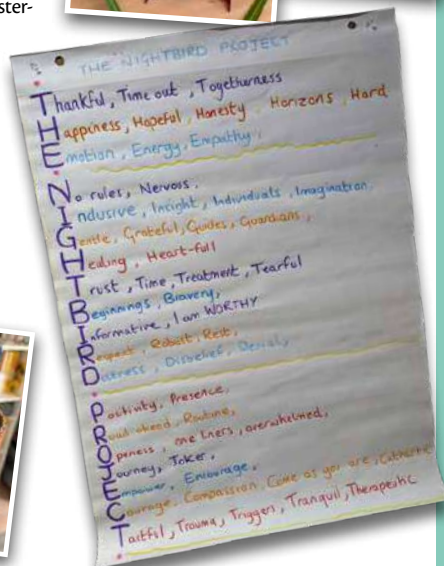 ster-
THE NIGHTBIRD PROJECT
Thankful, Time out, Togetherness
Happiness, Hopeful, Honesty, Horizons, Hard
Emotion, Energy, Empathy,
No rules, Nervous,
Inclusive, Insight, Individuals, Imagination,
Gentle, Grateful, Guides, Guardians,
Healing, Heart-full
Trust, Time, Treatment, Tearful
Beginnings, Bravery,
Informative, I am WORTHY
Respect, Robust, Rest,
Distress, Disbelief, Denial,
Positivity, Presence,
Road ahead, Routine,
Openess, one liners, overwhelmed,
Journey, Joker,
Empower, Encourage,
Courage, Compassion, Come as you are, Cathartic
Tactful, Trauma, Triggers, Tranquil, Therapeutic